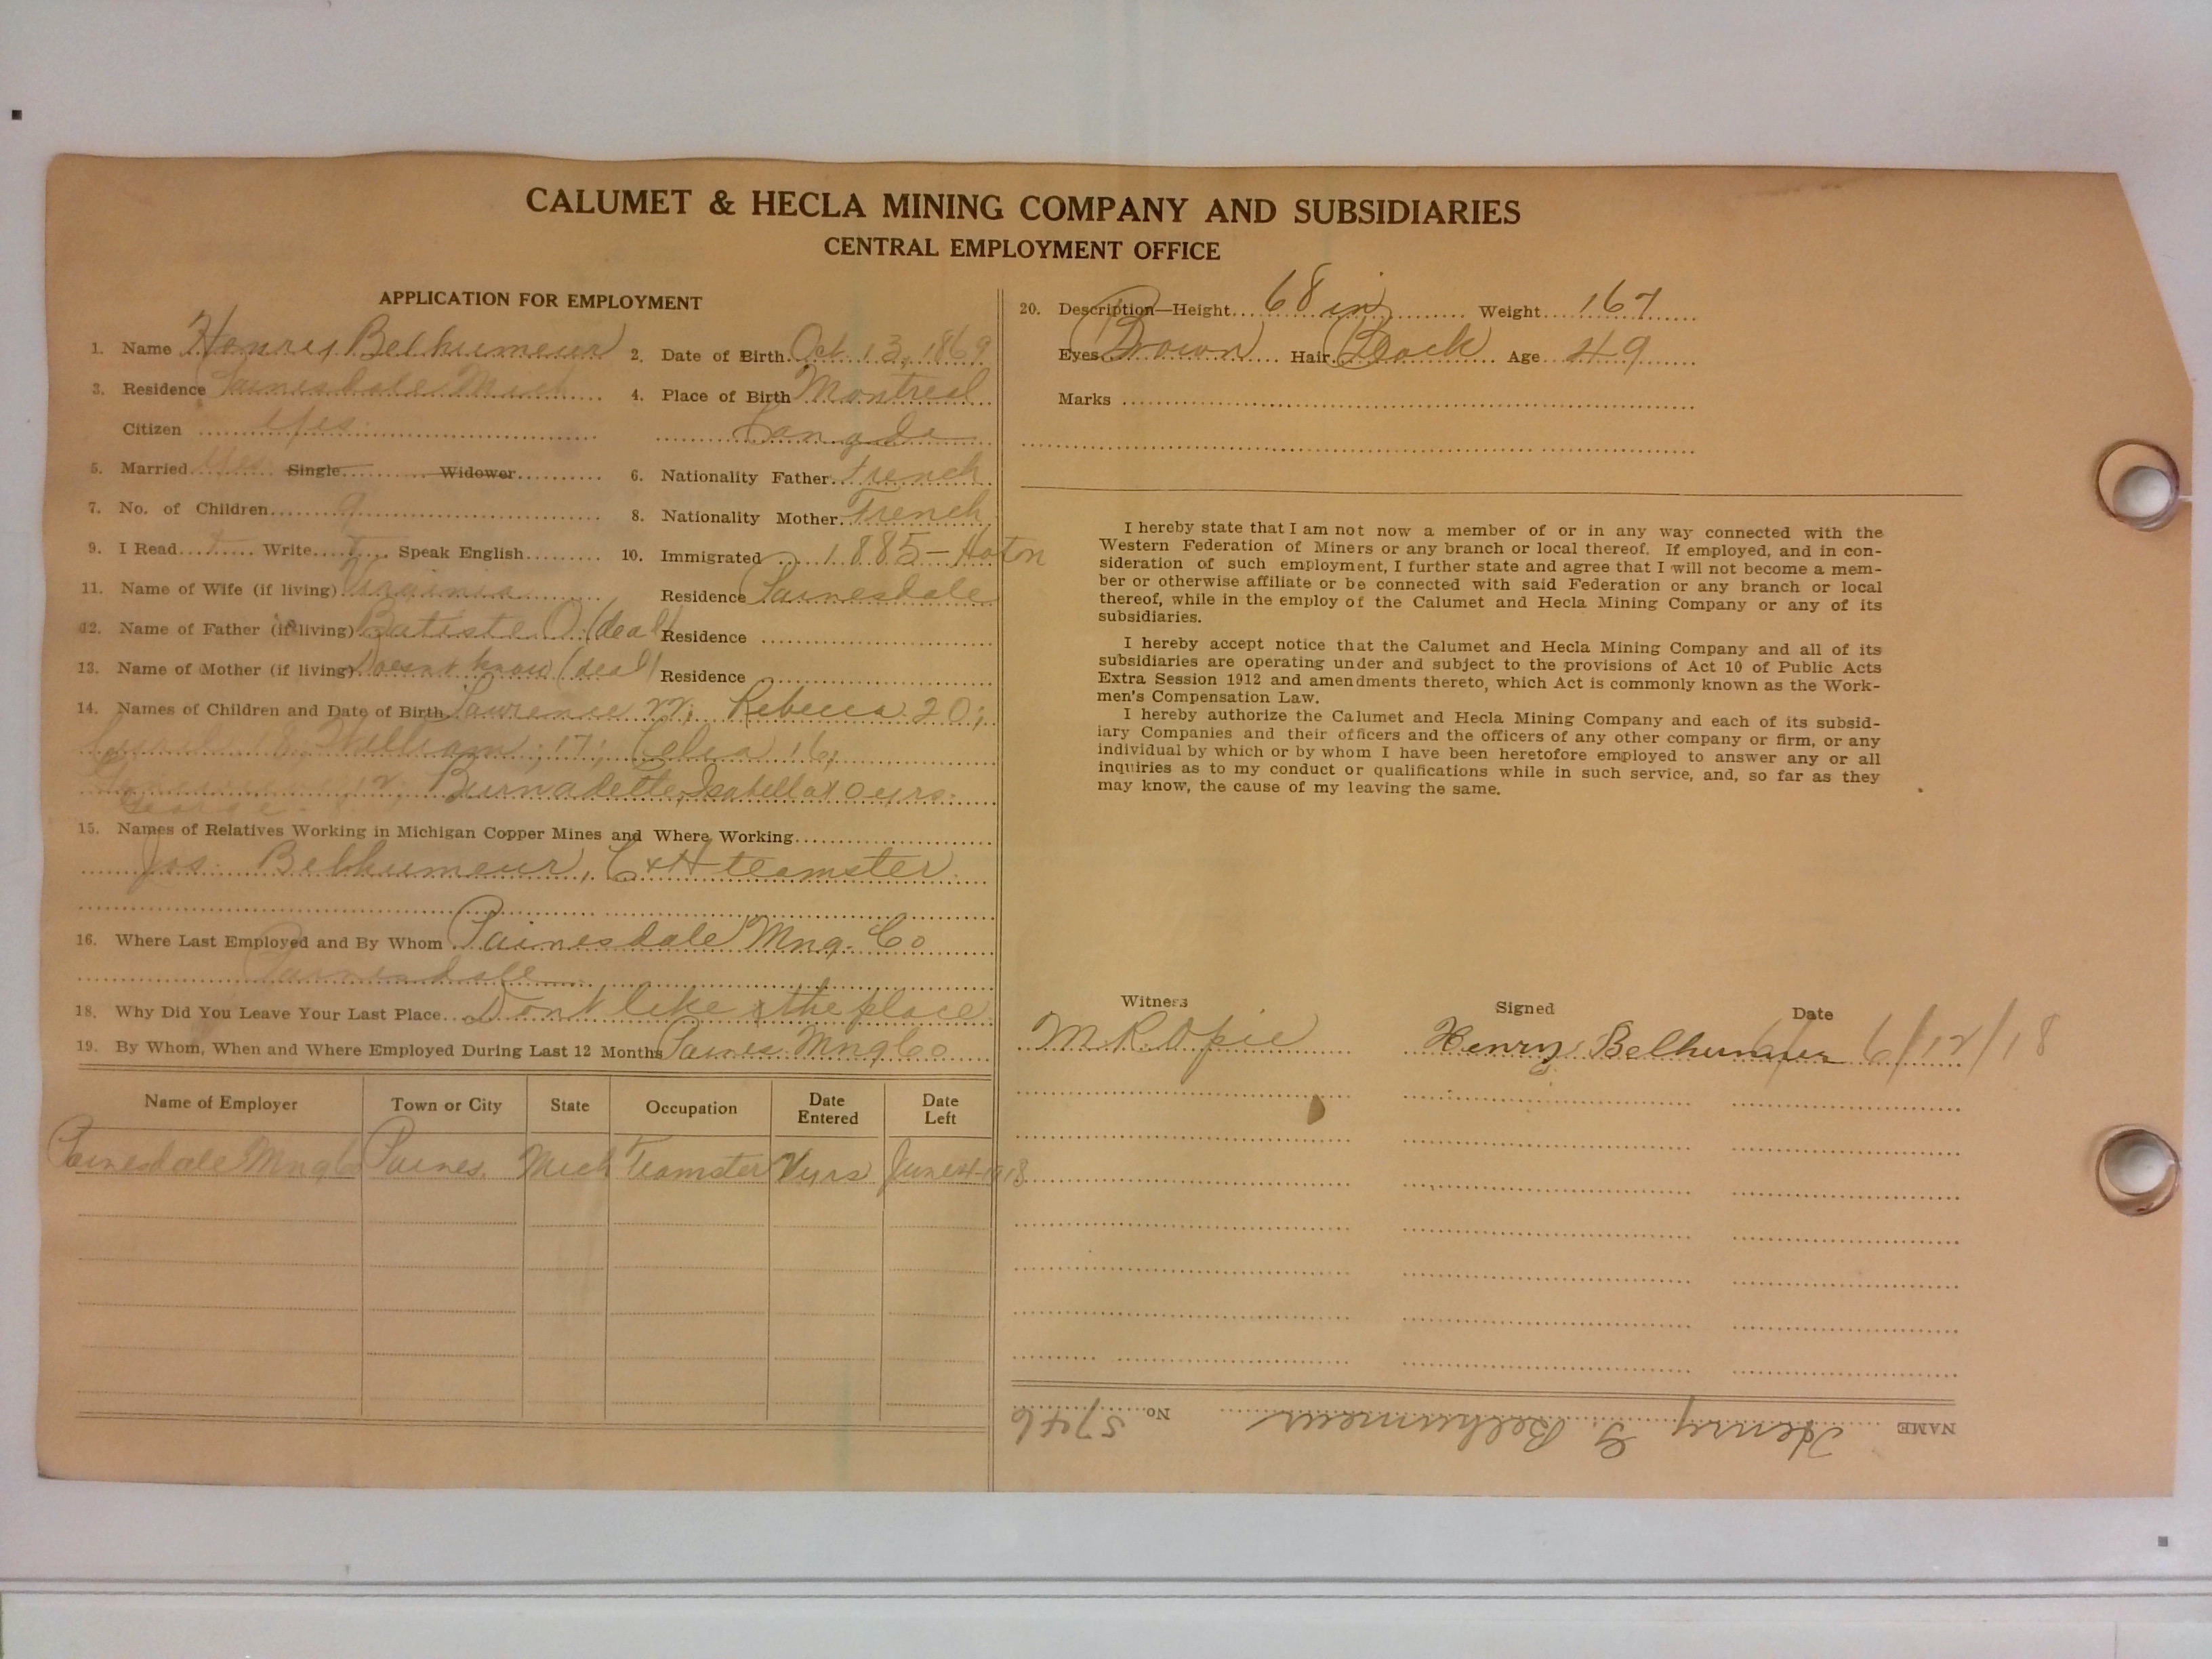 CALUMET & HECLA MINING COMPANY AND SUBSIDIARIES
CENTRAL EMPLOYMENT OFFICE
APPLICATION FOR EMPLOYMENT
1. Name Henry Belhumeur 2. Date of Birth Oct 13, 1869
3. Residence Painesdale Mich 4. Place of Birth Montreal
Citizen Yes Canada
5. Married Yes Single Widower 6. Nationality Father French
7. No. of Children 9 8. Nationality Mother French
9. I Read Write Speak English 10. Immigrated 1885-Hoton
11. Name of Wife (if living) Residence Painesdale
12. Name of Father (if living) Batiste (dead) Residence
13. Name of Mother (if living) Doesnt know (dead) Residence
14. Names of Children and Date of Birth Lawrence Rebecca 20;
18, William, 17; Celia 16,
12, Burnadette, Isabella
George
15. Names of Relatives Working in Michigan Copper Mines and Where Working
Jos. Belhumeur, C+H teamster
16. Where Last Employed and By Whom Painesdale Mng. Co
Painesdale
18. Why Did You Leave Your Last Place Dont like the place
19. By Whom, When and Where Employed During Last 12 Months Paines Mng Co
Name of Employer Town or City State Occupation Date Entered Date Left
Painesdale Mng Co Paines. Mich Teamster June 4-1918
20. Description—Height 68 in Weight 167
Eyes Brown Hair Black Age 49
Marks
I hereby state that I am not now a member of or in any way connected with the
Western Federation of Miners or any branch or local thereof. If employed, and in con-
sideration of such employment, I further state and agree that I will not become a mem-
ber or otherwise affiliate or be connected with said Federation or any branch or local
thereof, while in the employ of the Calumet and Hecla Mining Company or any of its
subsidiaries.
I hereby accept notice that the Calumet and Hecla Mining Company and all of its
subsidiaries are operating under and subject to the provisions of Act 10 of Public Acts
Extra Session 1912 and amendments thereto, which Act is commonly known as the Work-
men's Compensation Law.
I hereby authorize the Calumet and Hecla Mining Company and each of its subsid-
iary Companies and their officers and the officers of any other company or firm, or any
individual by which or by whom I have been heretofore employed to answer any or all
inquiries as to my conduct or qualifications while in such service, and, so far as they
may know, the cause of my leaving the same.
Witness Signed Date
M.R. Opie Henry Belhumeur 6/12/18
NAME Henry G. Belhumeur No. 5746